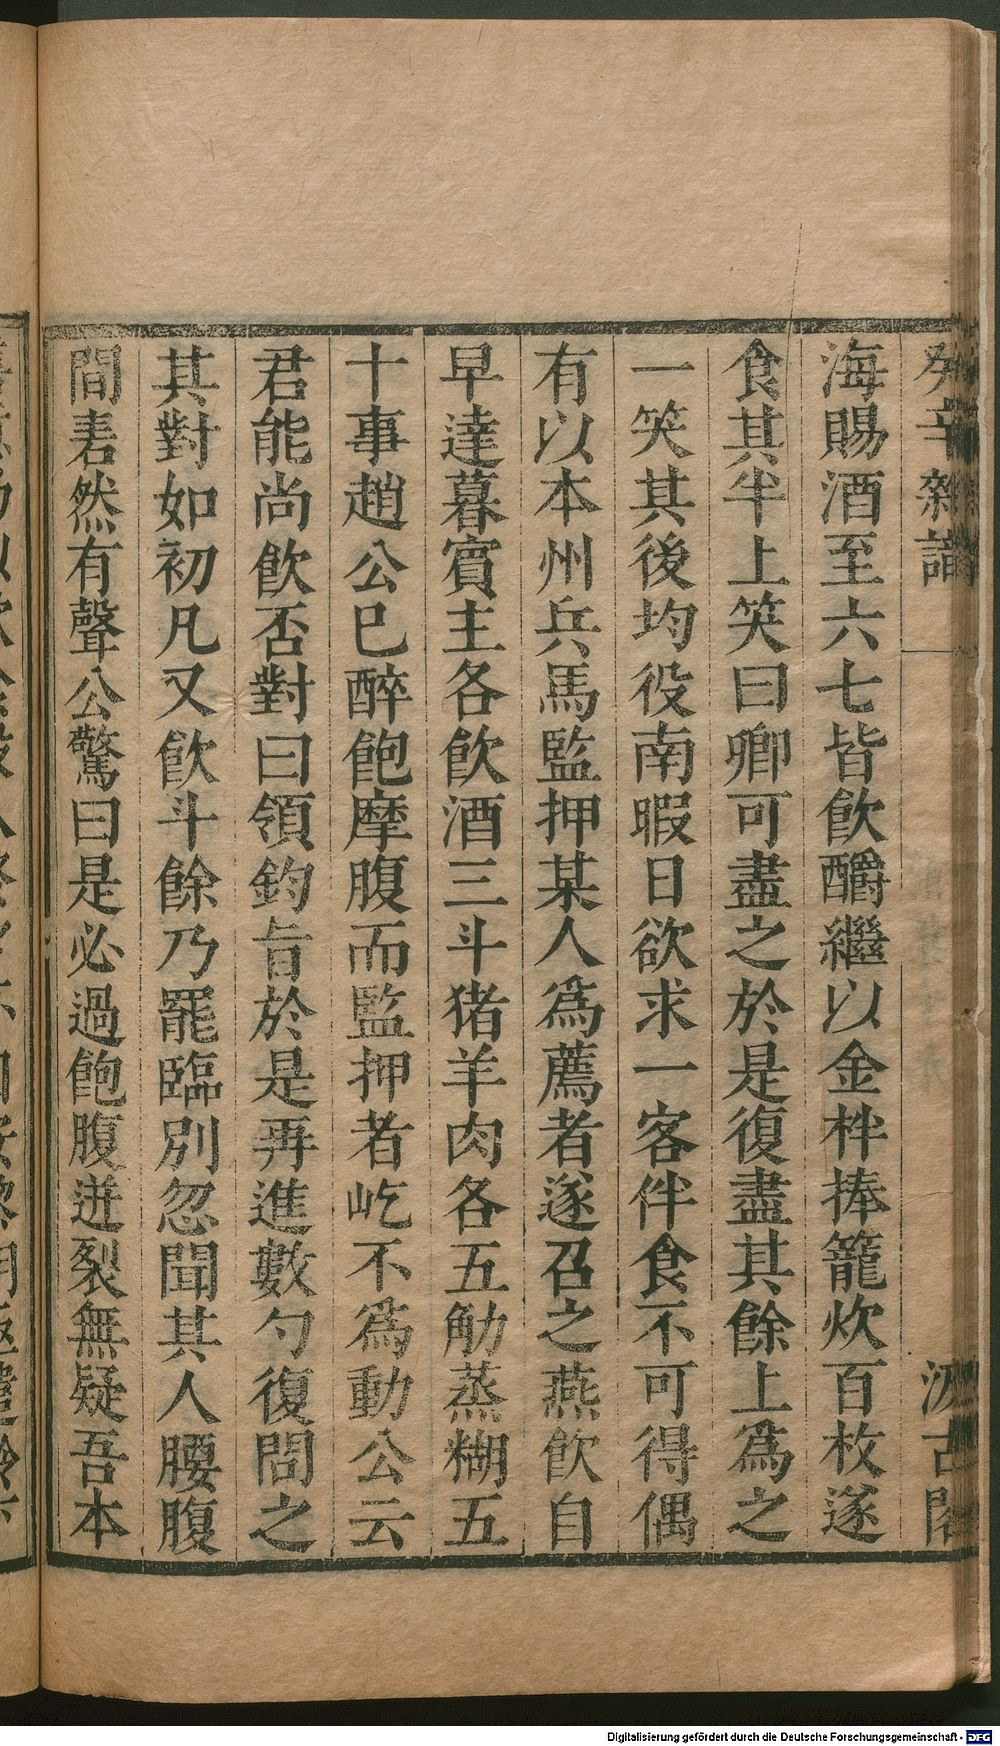 癸辛雜識
汲古閣
海賜酒至六七皆飲釂繼以金柈捧籠炊百枚遂
食其半上笑曰卿可盡之於是復盡其餘上爲之
一笑其後均役南暇日欲求一客伴食不可得偶
有以本州兵馬監押某人爲薦者遂召之燕飲自
早達暮賓主各飲酒三斗猪羊肉各五觔蒸糊五
十事趙公巳醉飽摩腹而監押者屹不爲動公云
君能尚飲否對曰領鈞旨於是再進數勺復問之
其對如初凡又飲斗餘乃罷臨別忽聞其人腰腹
間砉然有聲公驚曰是必過飽腹迸裂無疑吾本
Digitalisierung gefördert durch die Deutsche Forschungsgemeinschaft - DFG